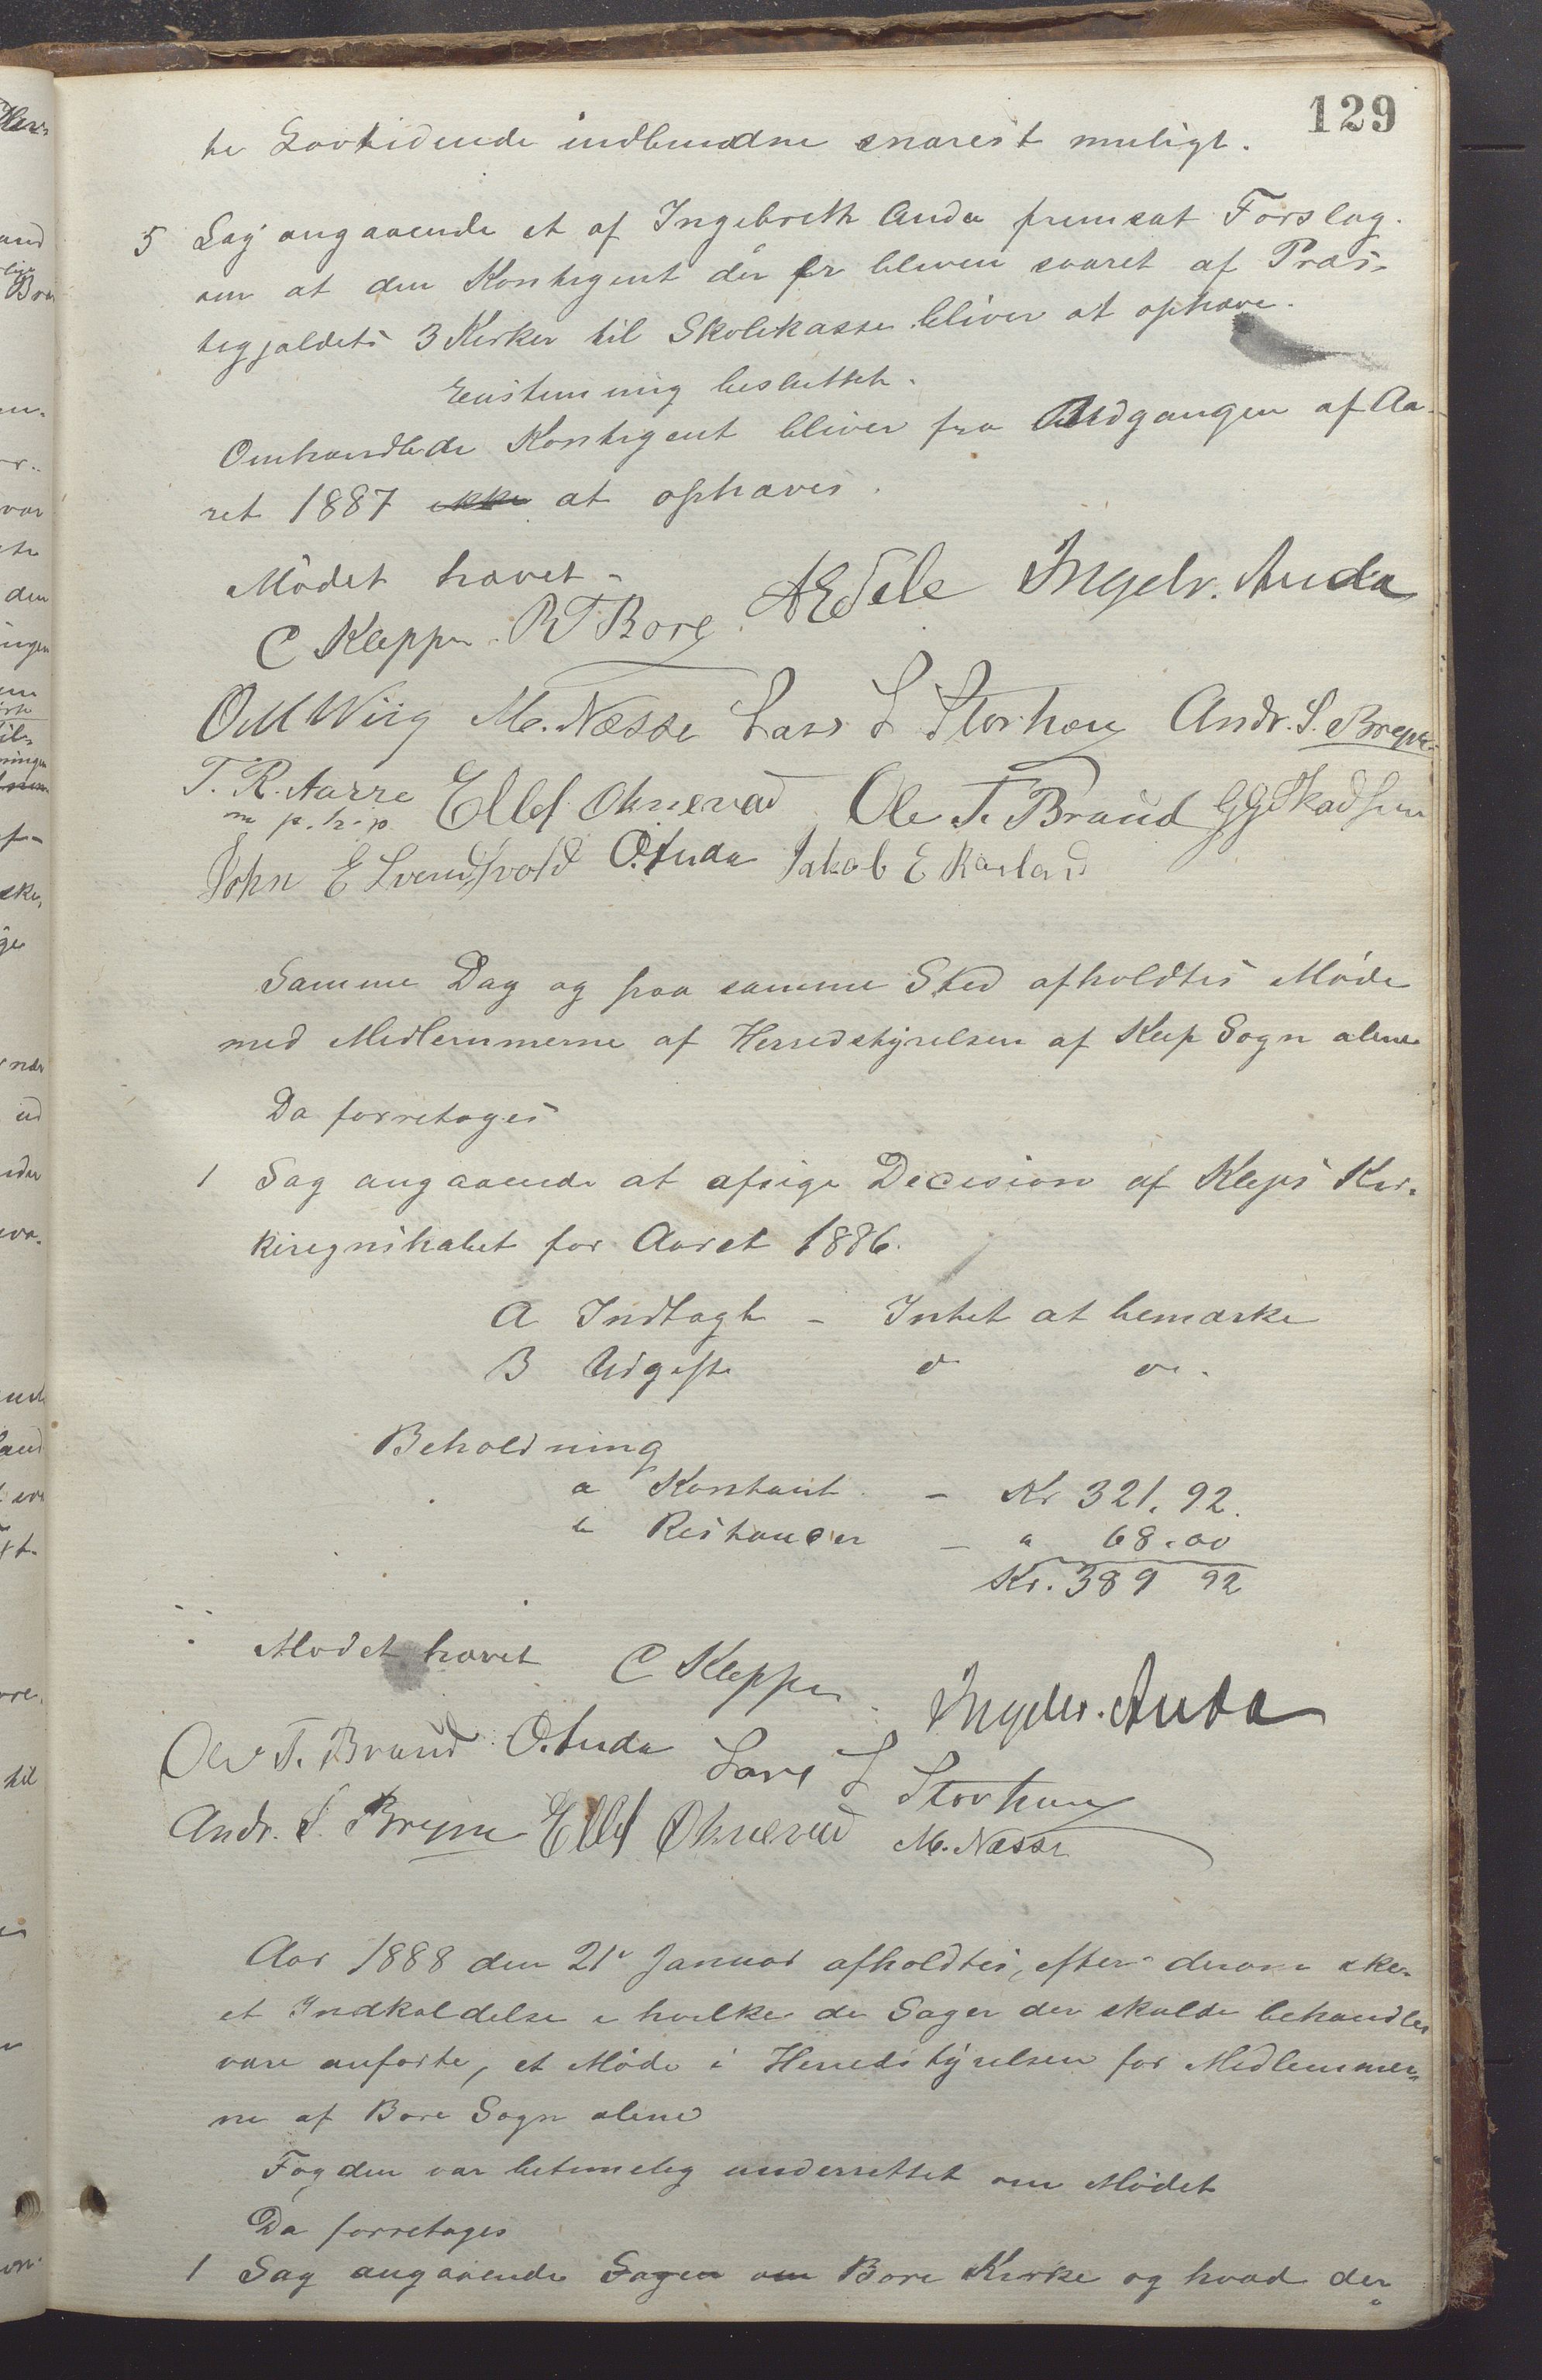 129
te Lovtidende indbundne snarest muligt.
5 Sag angaaende et af Ingebreth Anda fremsat Forslag
om at den Kontigent der er bleven svaret af Præs-
tegjældets 3 Kirker til Skolekasse bliver at ophæve.
Enstemmig besluttet.
Omhandlede Kontigent bliver fra Udgangen af Aa-
ret 1887 ikke at ophæves.
Mödet hævet.
C Kleppe. R T Bore. A Edele Ingebr. Anda
O M Wiig M. Næsse Lars L Storhoug Andr. S. Bryne
T. R. Aarre Ellef Øksnevad Ole T. Braud G G Skadsem
m p. h. p.
John E Svendsvold O. Anda Jakob E Risland
Samme Dag og paa samme Sted afholdtes Möde
med Medlemmerne af Herredstyrelsen af Klep Sogn alene
Da forretoges
1 Sag angaaende at afsige Decision af Kleps Kir-
keregnskabet for Aaret 1886.
A Indtægt - Intet at bemærke
B Udgift do do.
Beholdning
a Kontant - Kr 321.92.
b Restancer - " 68.00
Kr. 389 92
Mödet hævet C Kleppe. Ingebr. Anda
Ole T. Braud O. Anda Lars L Storhoug
Andr. S. Bryne Ellef Øksnevad M. Næsse
Aar 1888 den 21de Januar afholdtes, efter derom ske-
et Indkaldelse i hvilke de Sager der skulde behandles
vare anförte, et Möde i Herredstyrelsen for Medlemmer-
ne af Bore Sogn alene
Fogden var betimelig underrettet om Mödet
Da forretoges
1 Sag angaaende Sagen om Bore Kirke og hvad der